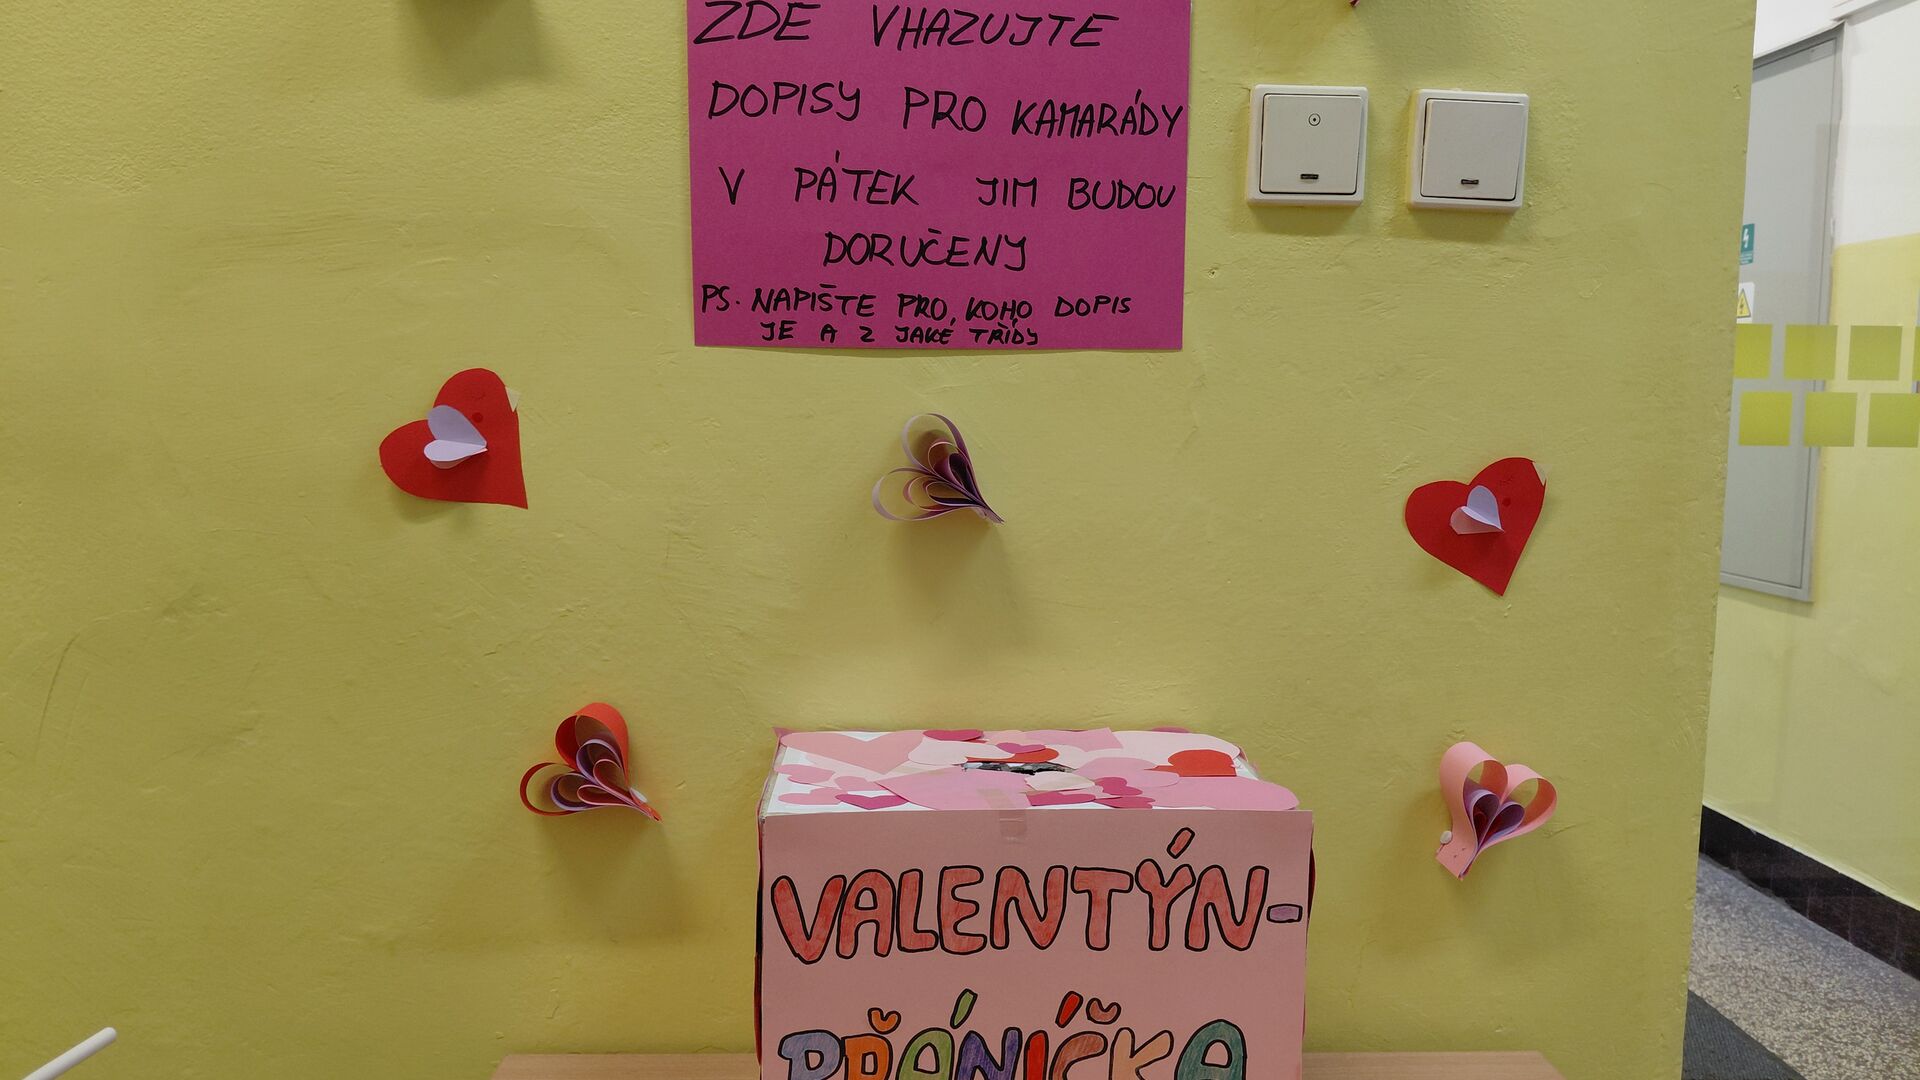 ZDE VHAZUJTE
DOPISY PRO KAMARÁDY
V PÁTEK JIM BUDOU
DORUČENY
PS. NAPIŠTE PRO, KOHO DOPIS
JE A Z JAKÉ TŘÍDY
VALENTÝN-
PŘÁNÍČKA